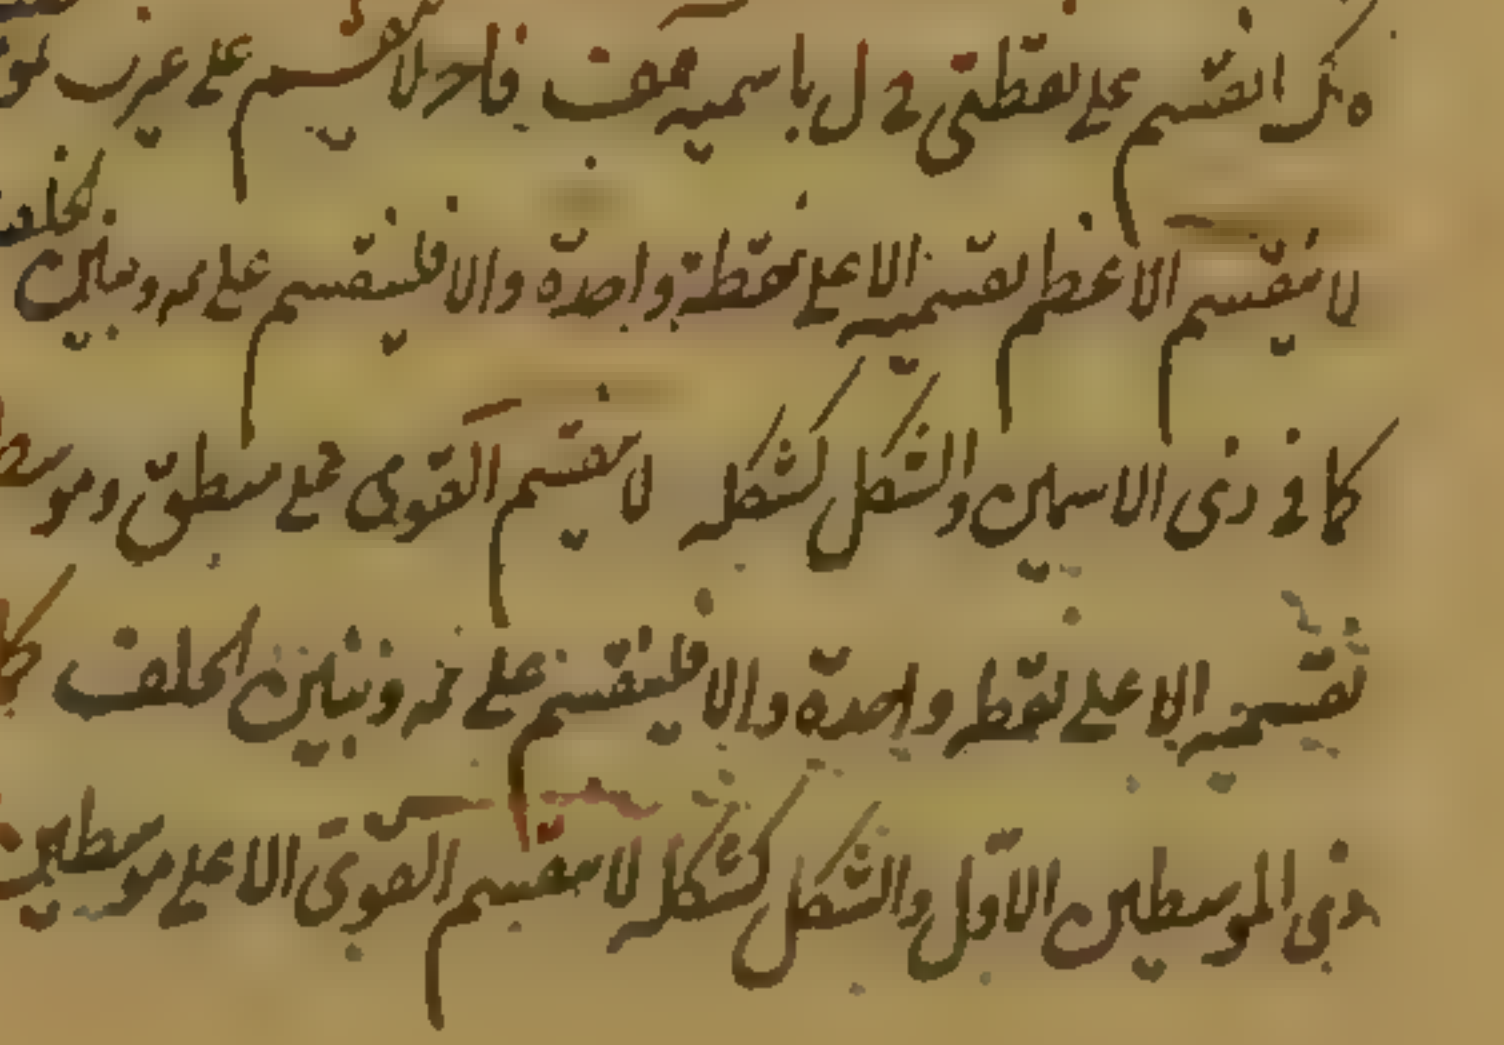 ه ك انقسم على نقطتى ح ل باسميه هف فاذن لا ينقسم على غير ب
لا ينقسم الاعظم بقسميه الا على نقطة واحدة والا فلينقسم على ه وتبين الخلف
كما فى ذى الاسمين والشكل كشكله لا ينقسم القوى على منطق وموسط
بقسميه الا على نقطة واحدة والا فلينقسم على ه وتبين الخلف كما
فى ذى الموسطين الاول والشكل كشكله لا ينقسم القوى الا على موسطين